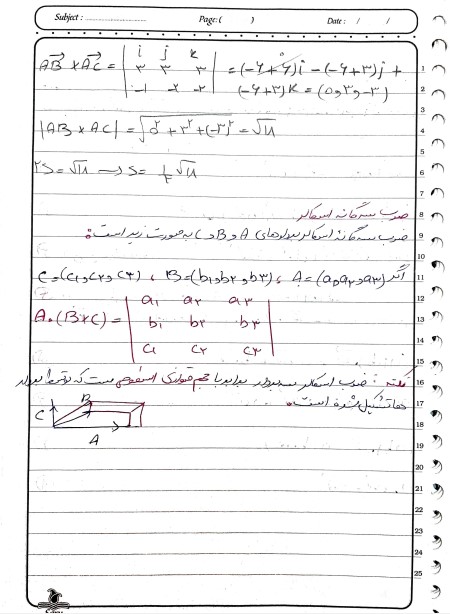 Subject : Page: ( ) Date : / /
AB × AC = | i j k | = (-۶+۶)i - (-۶+۳)j +
| ۳ ۳ ۳ |
| -۱ -۲ -۲ | (-۶+۳)k = (۰و۳و-۳)
|AB × AC| = √۰²+۳²+(-۳)² = √۱۸
۲S = √۱۸ → S = ۱/۲ √۱۸
ضرب سه گانه اسکالر
ضرب سه گانه اسکالر بردارهای A و B و C به صورت زیر است:
اگر A = (a₁وa₂وa₃) ، B = (b₁وb₂وb₃) ، C = (c₁وc₂وc₃)
A.(B×C) = | a₁ a₂ a₃ |
| b₁ b₂ b₃ |
| c₁ c₂ c₃ |
نکته : ضرب اسکالر سه بردار برابر با حجم متوازی السطوح است که توسط بردار
ها تشکیل شده است.
B
C
A
1
2
3
4
5
6
7
8
9
10
11
12
13
14
15
16
17
18
19
20
21
22
23
24
25